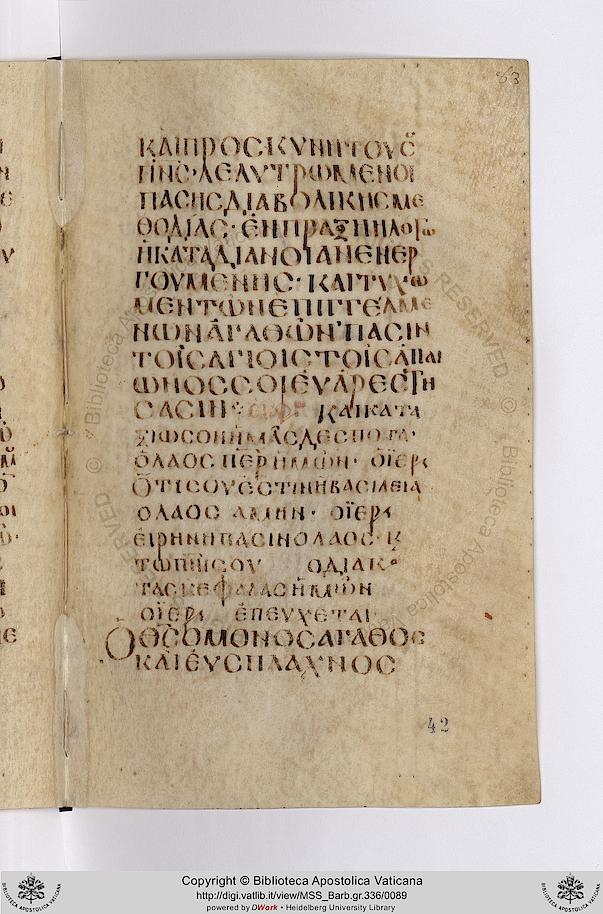 83
ΚΑΙΠΡΟΣΚΥΝΗΤΟΥΣ
ΓΗΣ· ΛΕΛΥΤΡΩΜΕΝΟΙ
ΠΑΣΗΣΔΙΑΒΟΛΙΚΗΣΜΕ
ΘΟΔΙΑΣ· ΕΝΠΡΑΞΗΗΛΟΓΩ
ΗΚΑΤΑΔΙΑΝΟΙΑΝΕΝΕΡ
ΓΟΥΜΕΝΗΣ· ΚΑΙΤΥΧΩ
ΜΕΝΤΩΝΕΠΗΓΓΕΛΜΕ
ΝΩΝΑΓΑΘΩΝΠΑΣΙΝ
ΤΟΙΣΑΓΙΟΙΣΤΟΙΣΑΠΑΙ
ΩΝΟΣΣΟΙΕΥΑΡΕΣΤΗ
ΣΑΣΙΝ· ΚΑΙΚΑΤΑ
ΞΙΩΣΟΝΗΜΑΣΔΕΣΠΟΤΑ·
ΟΛΑΟΣ ΠΕΡΗΜΩΝ· ΟΪΕΡ
ΟΤΙΣΟΥΕΣΤΙΝΗΒΑΣΙΛΕΙΑ
ΟΛΑΟΣ ΑΜΗΝ· ΟΪΕΡ
ΕΙΡΗΝΗΠΑΣΙΝΟΛΑΟΣ· Κ
ΤΩΠΝΙΣΟΥ ΟΔΙΑΚΟ
ΤΑΣΚΕΦΑΛΑΣΗΜΩΝ
ΟΪΕΡ ΕΠΕΥΧΕΤΑΙ
ΟΘΣΟΜΟΝΟΣΑΓΑΘΟΣ
ΚΑΙΕΥΣΠΛΑΧΝΟΣ
42
Copyright © Biblioteca Apostolica Vaticana
http://digi.vatlib.it/view/MSS_Barb.gr.336/0089
powered by DWork • Heidelberg University Library